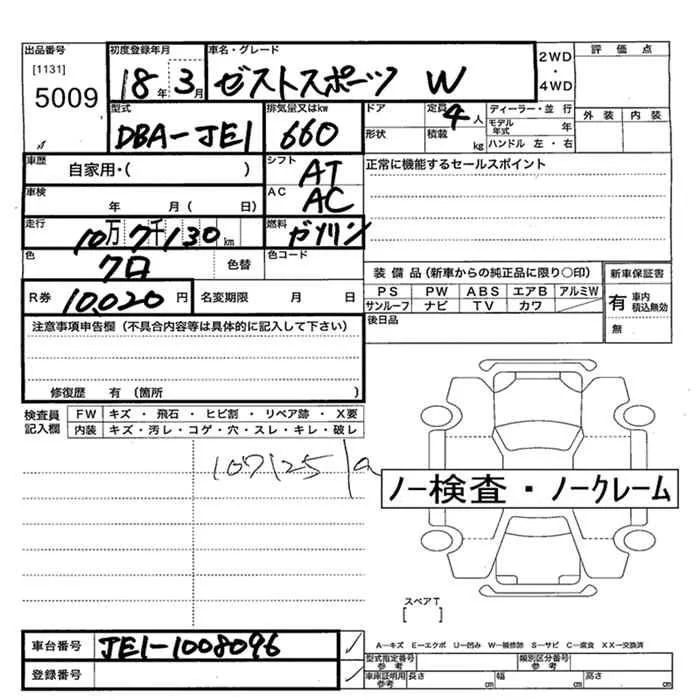 出品番号 初度登録年月 車名・グレード 2WD 評価点
[1131] 5009 18年 3月 ゼストスポーツ W ・4WD
型式 排気量又はkw ドア 定員 4人 ディーラー・並行 外装 内装
DBA-JE1 660 形状 積載 kg モデル年式 年
ハンドル 左・右
車歴 自家用・( ) シフト AT 正常に機能するセールスポイント
車検 年 月( 日) AC AC
走行 10万7千130km 燃料 ガソリン
色 クロ 色替 色コード 装備品(新車からの純正品に限り○印) 新車保証書
R券 10,020円 名変期限 月 日 PS PW ABS エアB アルミW 有 車内積込無効
サンルーフ ナビ TV カワ 無
注意事項申告欄(不具合内容等は具体的に記入して下さい) 後日品
修復歴 有(箇所 )
検査員記入欄 FW キズ・飛石・ヒビ割・リペア跡・X要
内装 キズ・汚レ・コゲ・穴・スレ・キレ・破レ
107125
ノー検査・ノークレーム
スペアT
[ ]
車台番号 JE1-1008096 A-キズ E-エクボ U-凹み W-補修跡 S-サビ C-腐食 XX-交換済
登録番号 型式指定番号 参考 類別区分番号 参考
車庫証明用 参考 長さ cm 幅 cm 高さ cm